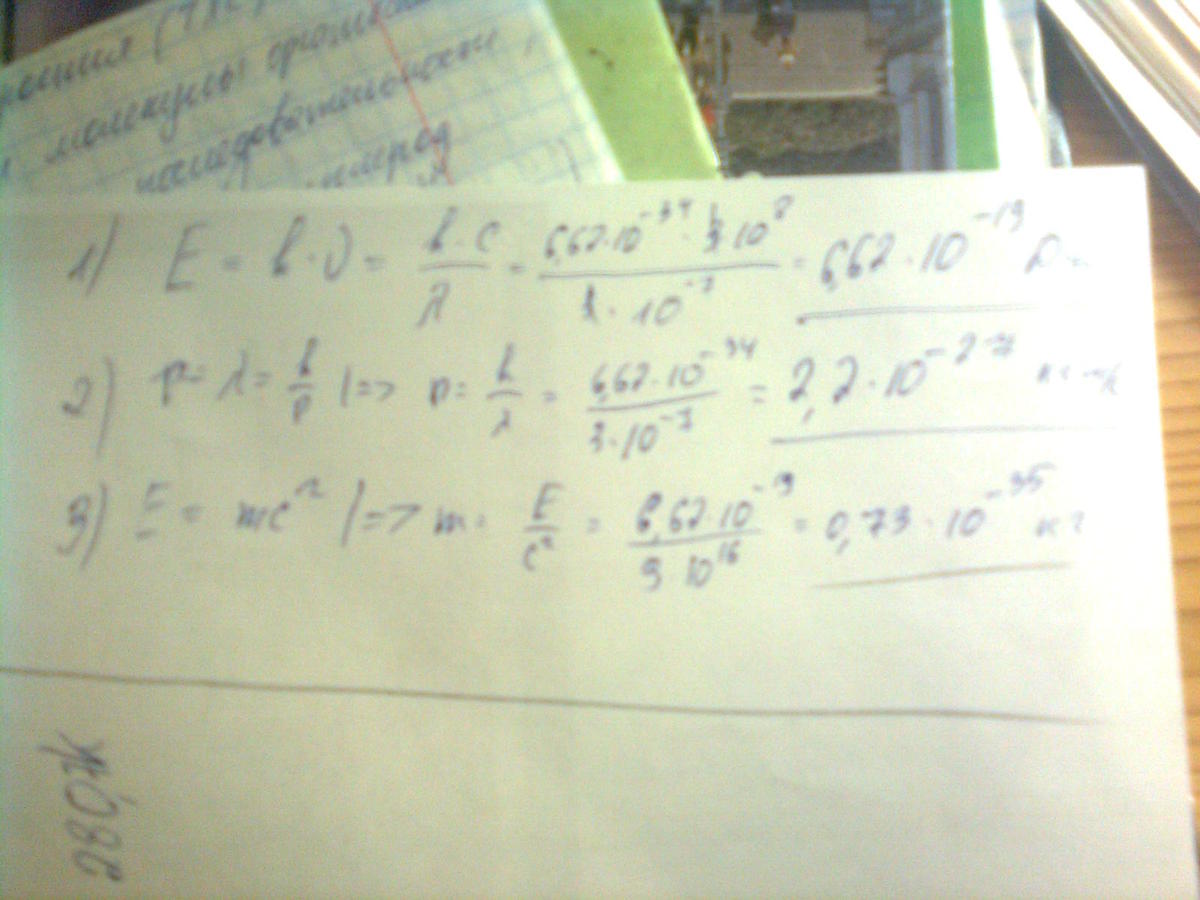 молекулы
последовательности,
1) E = h·ν = h·c/λ = 6,62·10^-34·3·10^8 / 3·10^-7 = 6,62·10^-19 Дж
2) p= λ = h/p |=> p= h/λ = 6,62·10^-34 / 3·10^-7 = 2,2·10^-27 кг·м/с
3) E = mc² |=> m= E/c² = 6,62·10^-19 / 9·10^16 = 0,73·10^-35 кг
280,7К